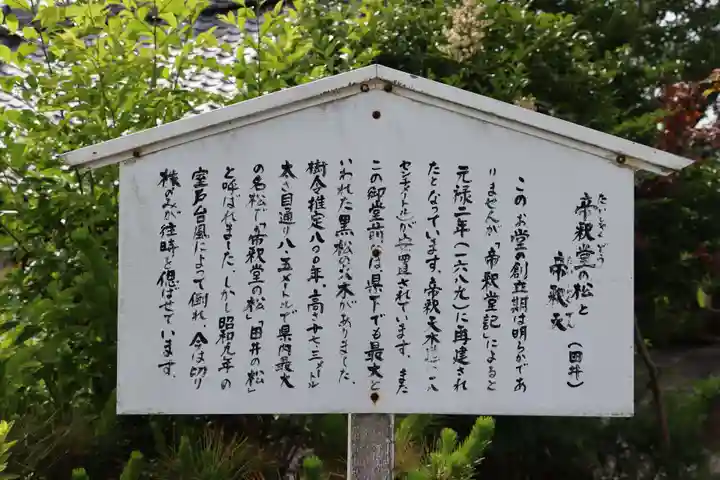 たいしゃくどう
帝釈堂の松と
帝釈天
(田井)
このお堂の創立期は明らかであ
りませんが「帝釈堂記」によると
元禄二年(一六八九)に再建され
たとなっています。帝釈天木像
センチメートル)が安置されています。また
この御堂前には県下でも最大と
いわれた黒松の大木がありました。
樹令推定八〇〇年、高さ十七・三メートル
太さ目通り八・五メートルで県内最大
の名松で「帝釈堂の松」「田井の松」
と呼ばれました。しかし昭和九年の
室戸台風によって倒れ、今は切り
株のみが往時を偲ばせています。